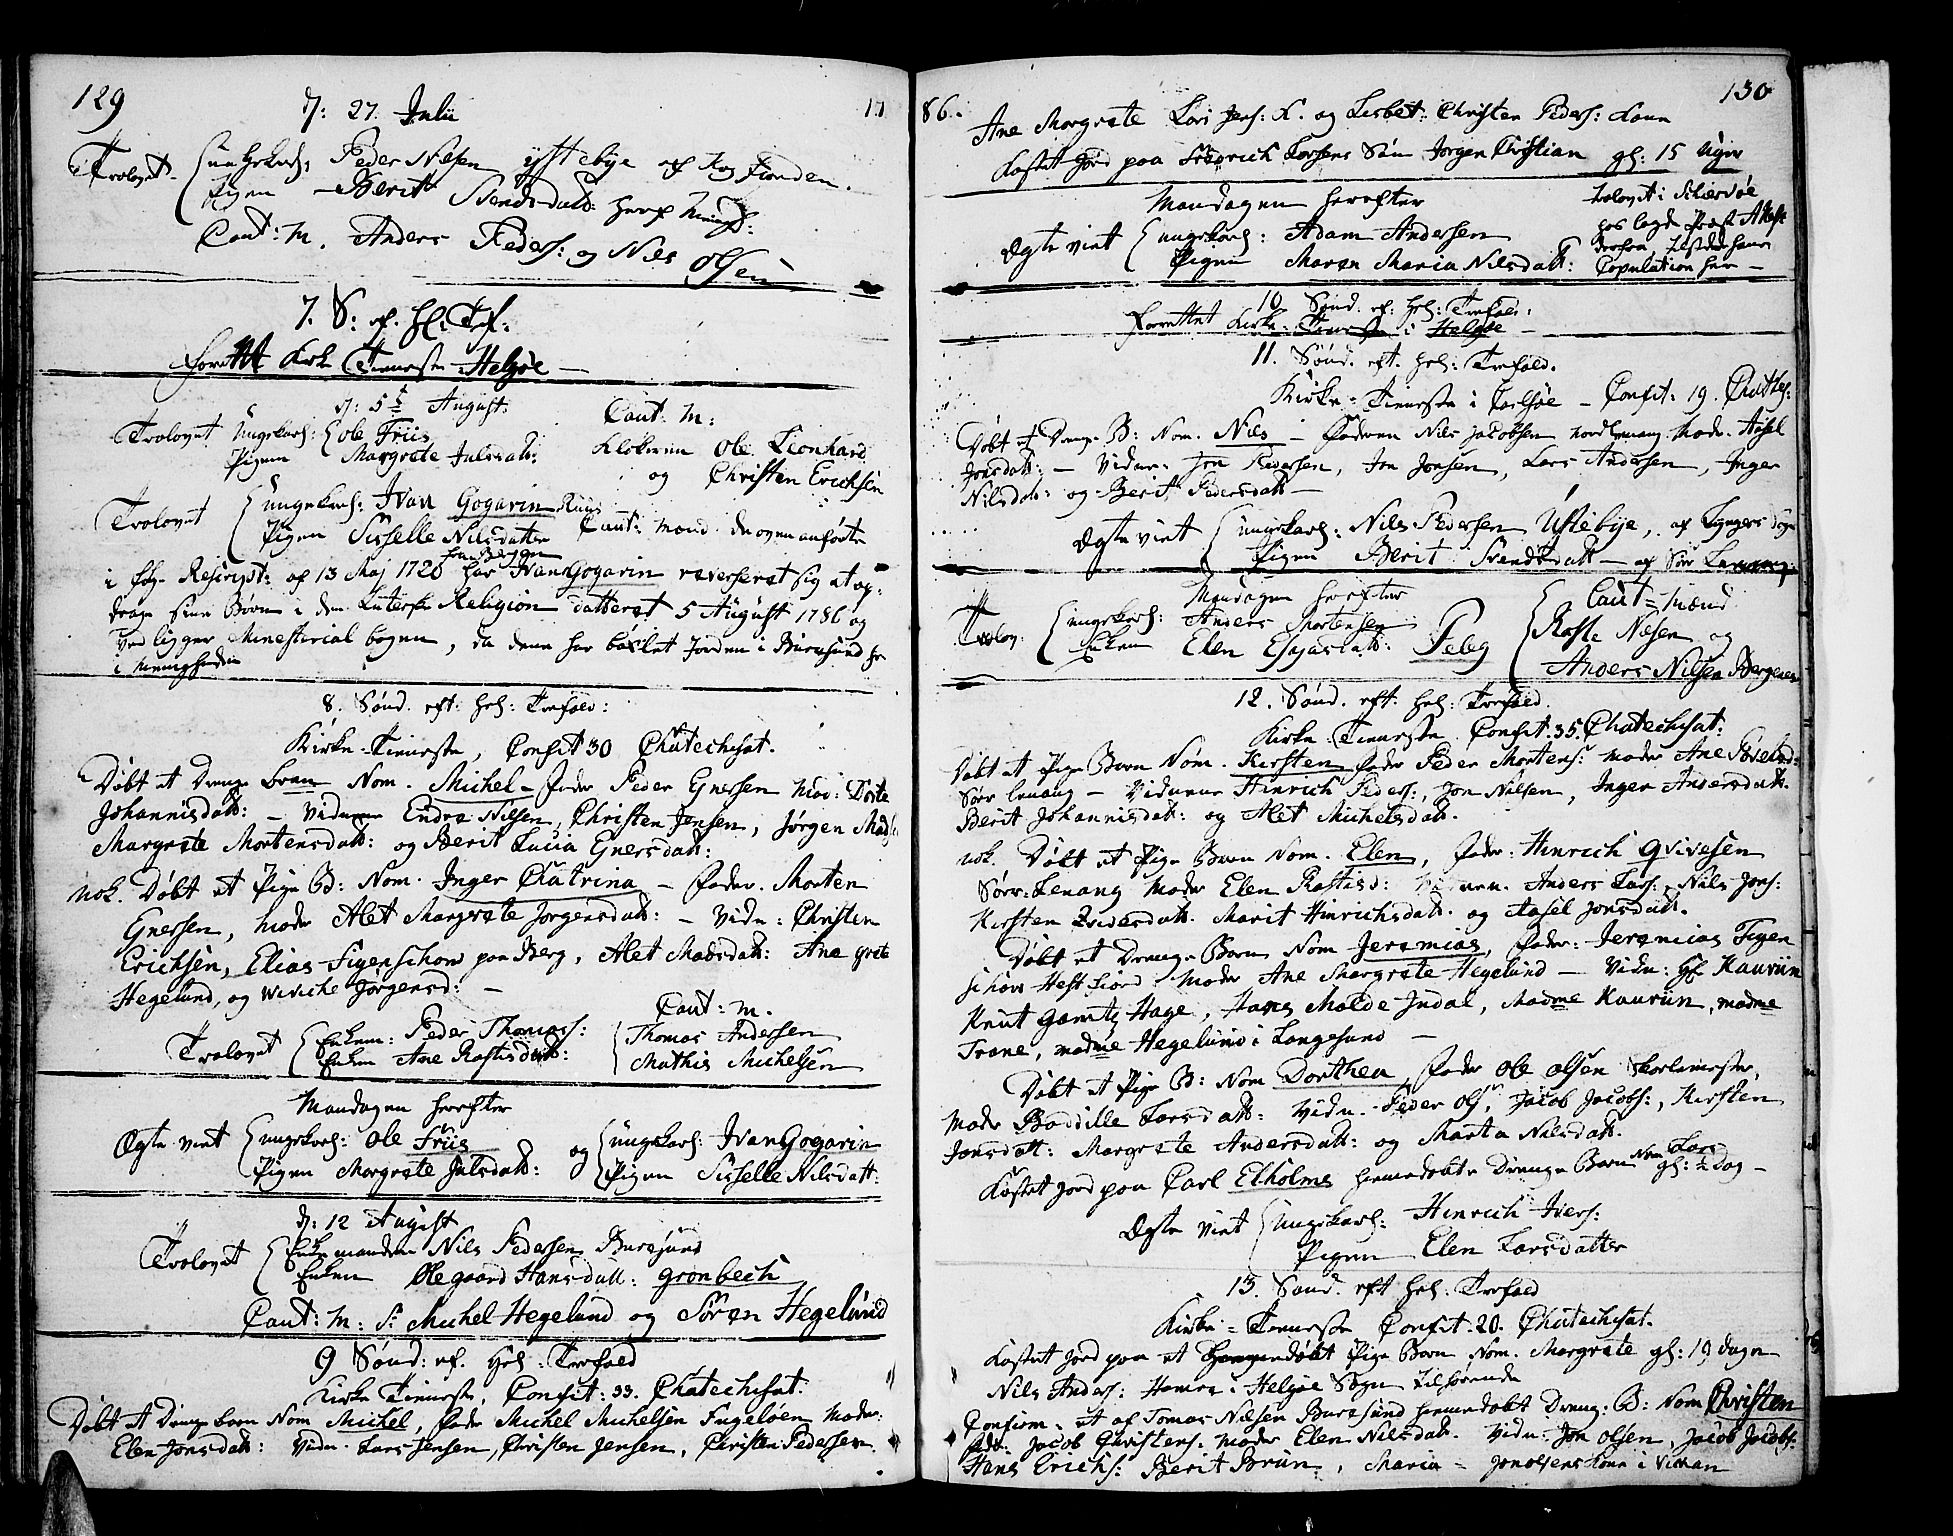 129
17
d: 27 Julii
Trolovet ungekarl: Peder Nilsen ystebye af
Pigen Berit Svendsdatt:
Caut: M. Anders Peders: og Nils Olsen
7. S: ef. Hl: Trf:
Forrett Kirke Tieneste Helgøe
d: 5t August:
Trolovet Ungekarl: Ole Friis
Pigen Margrete Julsdatt:
Caut: M:
Klokeren Ole Leonhard
og Christen Erichsen
Trolovet ungekarl: Ivan Gogarin Russ
Pigen Sisselle Nilsdatter
Caut: Mænd de oven anførte
i følge Rescript: af 13 Maj 1720 har Ivan Gogarin reverseret sig at op-
drage sine Børn i den Luterske Religion datteret 5 August 1786 og
ved ligger Minesterial bogen, da denne har besl Jorden i Buresund her
i menigheden
8. Sønd. eft: Hel: Trefold:
Kirke-Tieneste, Confit 30 Chatechisat.
Døbt et Drenge barn Nom. Michel - Fader Peder Gnersen Mod: Dorte
Johannisdatt: - Vidner Endre Nilsen, Christen Jensen, Jørgen Mads
Margrete Mortensdatt: og Berit Lucia Gnersdatt:
nok. Døbt et Pige B: Nom. Inger Chatrina - Fader. Morten
Gnersen, Moder Alet Margrete Jørgensdatt: - Vidn: Christen
Erichsen, Elias Figenschow paa Berg, Alet Madsdatt: Ane Grete
Hegelund, og Wiviche Jørgensd: -
Caut: M.
Trolovet Enkem: Peder Thomass: Thomas Andersen
Enken Ane Rastisdatt: Mathis Michelsen
Mandagen herefter
Ægte viet ungekarl: Ole Friis og ungekarl: Ivan Gogarin
Pigen Margrete Julsdatt: Pigen Sisselle Nilsdatt:
d: 12 August
Trolovet Enkemanden Nils Pedersen Buresund
Enken Olegaard Hansdatt: Grønbech
Caut: M: Sr Michel Hegelund og Søren Hegelund
9 Sønd: ef. Hel: Trefold
Kirke Tieneste, Confit: 33. Chatechisat.
Døbt et Drenge barn Nom Michel, Fader Michel Michelsen Fugeløen Moder:
Elen Jonsdatt: Vidn. Lars Jensen, Christen Jensen, Christen Pedersen
86.
130
Ane Margrete Lars Jens: K. og Lisbet: Christen Peders: Kone
Kastet Jord paa Fredrich Larsens Søn Jørgen Christian gl: 15 Uger
Mandagen herefter
Ægte viet ungekarl: Adam Andersen
Pigen Maren Maria Nilsdatt:
trolovet i Skiervøe
Population her -
10 Sønd. ef. Hel: Trefold:
Forrettet Kirke-Tieneste i Helgøe -
11. Sønd. eft. Hel: Trefold.
Kirke-Tieneste i Carlsøe - Confit: 19. Chattes:
Døbt et Drenge B: Nom. Nils - Faderen Nils Jacobsen Moder. Assel
Jonsdatt: - Vidner: Jon Pedersen, Jon Jonsen, Lars Andersen, Inger
Nilsdatt: og Berit Pedersdatt -
Ægte viet ungekarl: Nils Pedersen Ystebye, af Lyngens Sogn
Pigen Berit Svendsdatt - af Sør Lenang
Mandagen herefter
Trolov: ungekarl: Anders Mortensen
Enken Elen Esajasdatt: Peleg
Caut = Mænd
Raste Nilsen og
Anders Nilsen Bergenes
12. Sønd. eft. Hel: Trefold.
Kirke-Tieneste Confit. 35. Chatechisat:
Døbt et Pige Barn Nom. Kirsten Fader Peder Mortens: Moder Ane
Sørlenang - Vidnerne Hinrich Peders:, Jon Nilsen, Inger Andersdatt.
Berit Johannisdatt: og Alet Michelsdatt.
nok. Døbt et Pige Barn Nom. Elen, Fader: Hinrich Qvivesen
Sørr-Lenang Moder Elen Rastisd: Vidnern. Anders Lars:, Nils Jons:
Kirsten Pedersdatt. Marit Hinrichsdatt. og Assel Jonsdatt.
Døbt et Drenge Barn Nom Jeremias, Fader: Jeremias Figen
schow Hestfiord Moder Ane Margrete Hegelund - Vidn: Hr Kauriin
Knut Gamtz Hage, Hans Molde Indal, Madme Kauriin, madme
Trane, madme Hegelund i Langesund -
Døbt et Pige B: Nom Dorthea, Fader Ole Olsen Skolemester,
Moder Bodille Larsdatt: Vidn. Peder Ols:, Jacob Jacobs:, Kirsten
Jonsdatt: Margrete Andersdatt: og Marta Nilsdatt.
Kastet Jord paa Carl Elholms hiemedøbte Drenge Barn Nom Lars gl: ½ Dag -
Ægte viet Ungekarl: Hinrich Ivers:
Pigen Elen Larsdatter
13. Sønd. eft Hel: Trefold
Kirke-Tieneste Confit: 20. Chatechisat.
Kastet Jord paa et hiemmedøbt Pige Barn Nom. Margrete gl: 19 dage
Nils Anders: Hamre i Helgøe Sogn tilhørende
Confirm. et af Tomas Nilsen Buresund hiemedøbt Dreng. B: Nom Christen
Fader: Jacob Christens. Moder Elen Nilsdatt. Vidn: Jon Olsen, Jacob Jacobs:
Hans Erichs: Berit Bruun, Maria - Jon Olsens Kone i Vickan